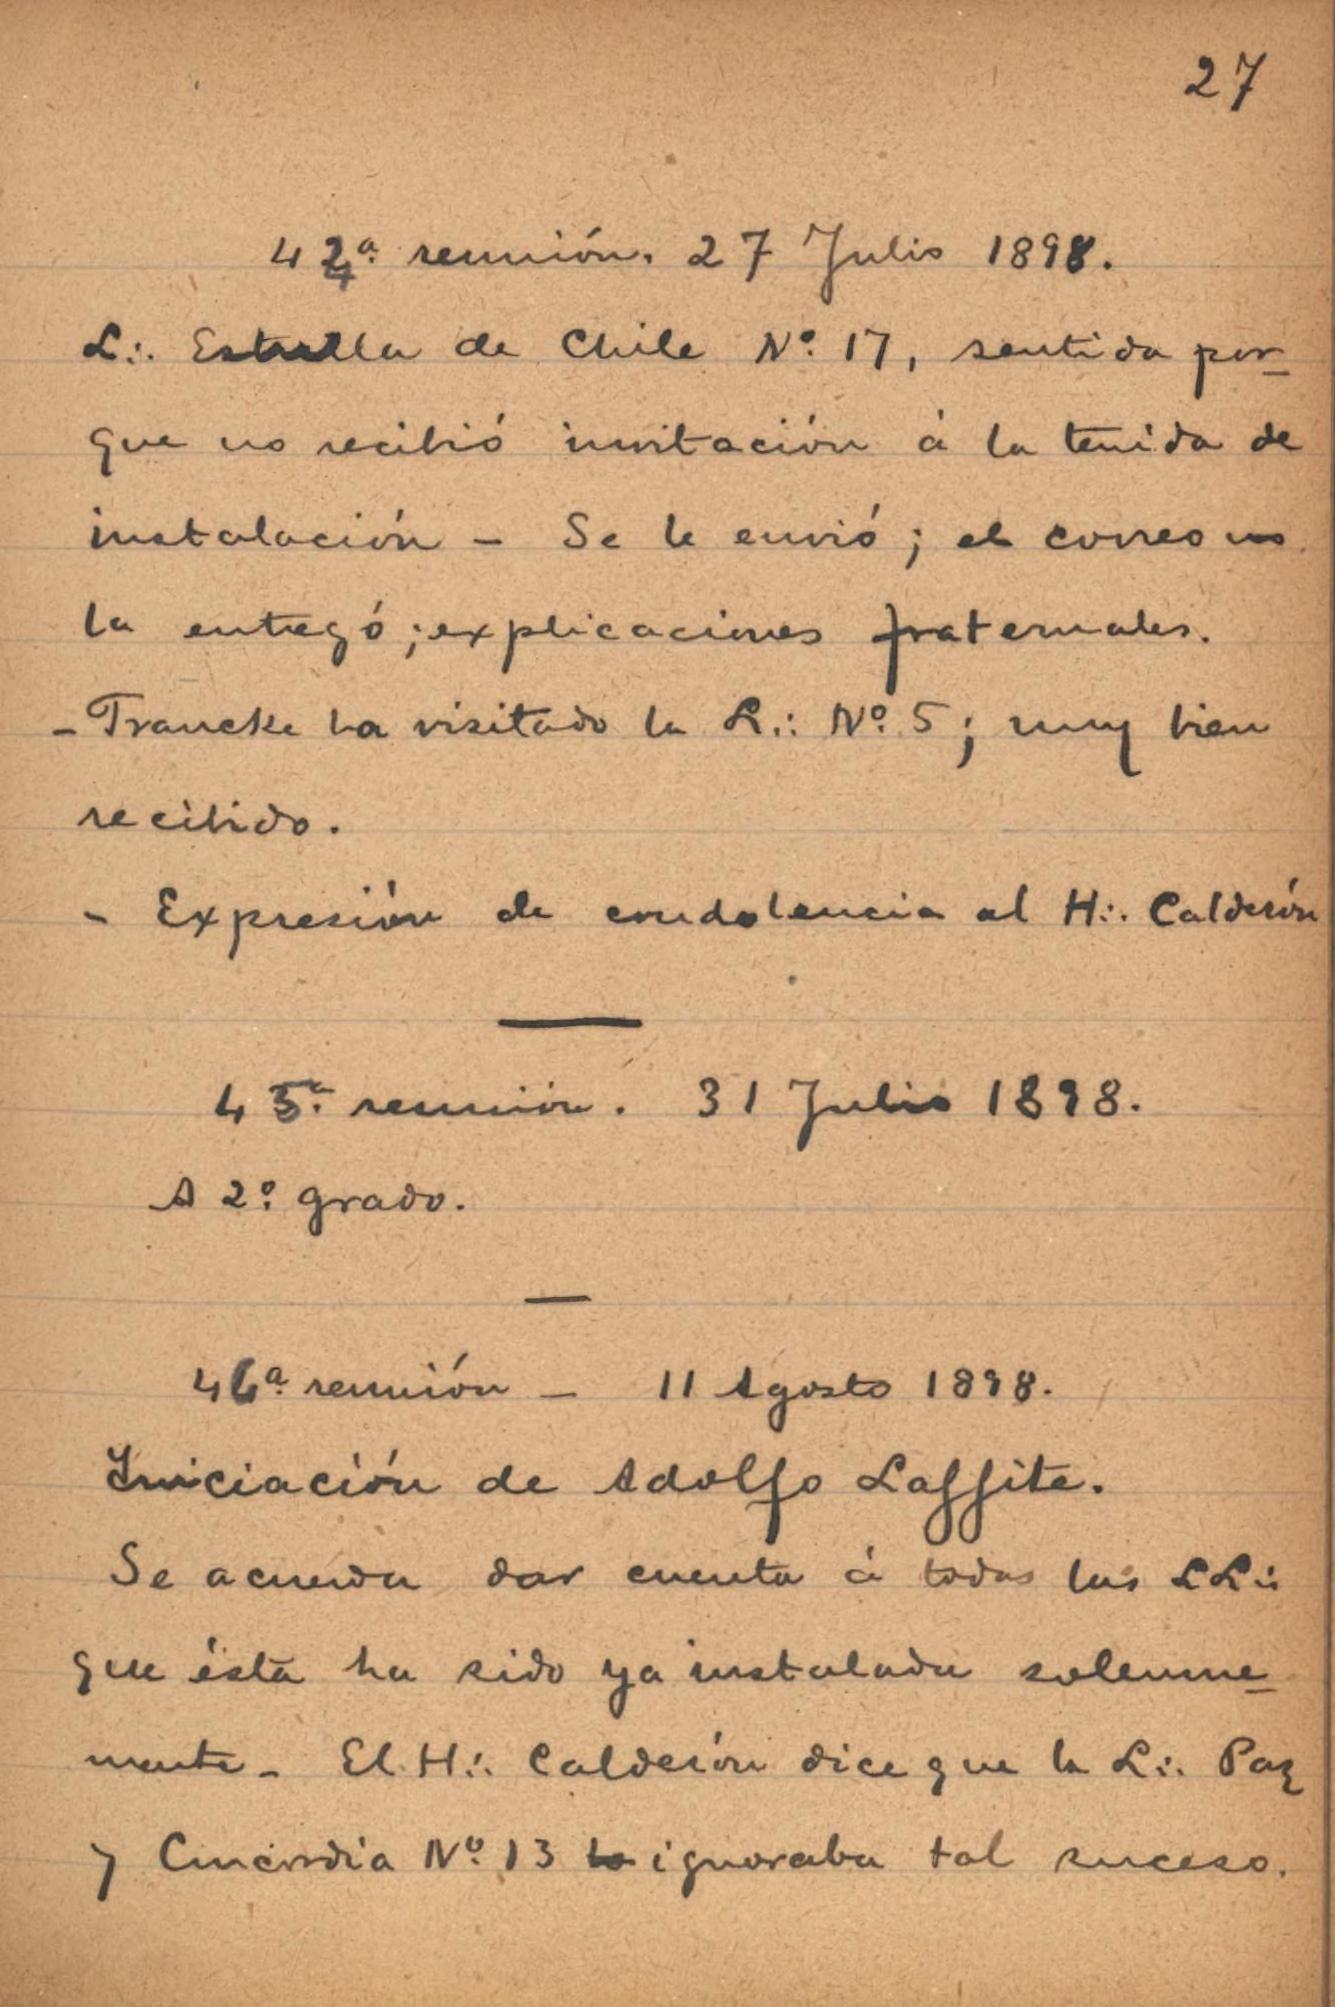 27
44ª reunión. 27 Julio 1898.
L∴ Estrella de Chile Nº 17, sentida por-
que no recibió invitación á la tenida de
instalación - Se le envió; el correo no
la entregó; explicaciones fraternales.
- Trancke ha visitado la R∴ Nº 5; muy bien
recibido.
- Expresión de condolencia al H∴ Calderón
45ª reunión. 31 Julio 1898.
A 2º grado.
46ª reunión - 11 Agosto 1898.
Iniciación de Adolfo Laffite.
Se acuerda dar cuenta á todas las LL∴
que ésta ha sido ya instalada solemne-
mente - El H∴ Calderón dice que la L∴ Paz
y Concordia Nº 13 ignoraba tal suceso.